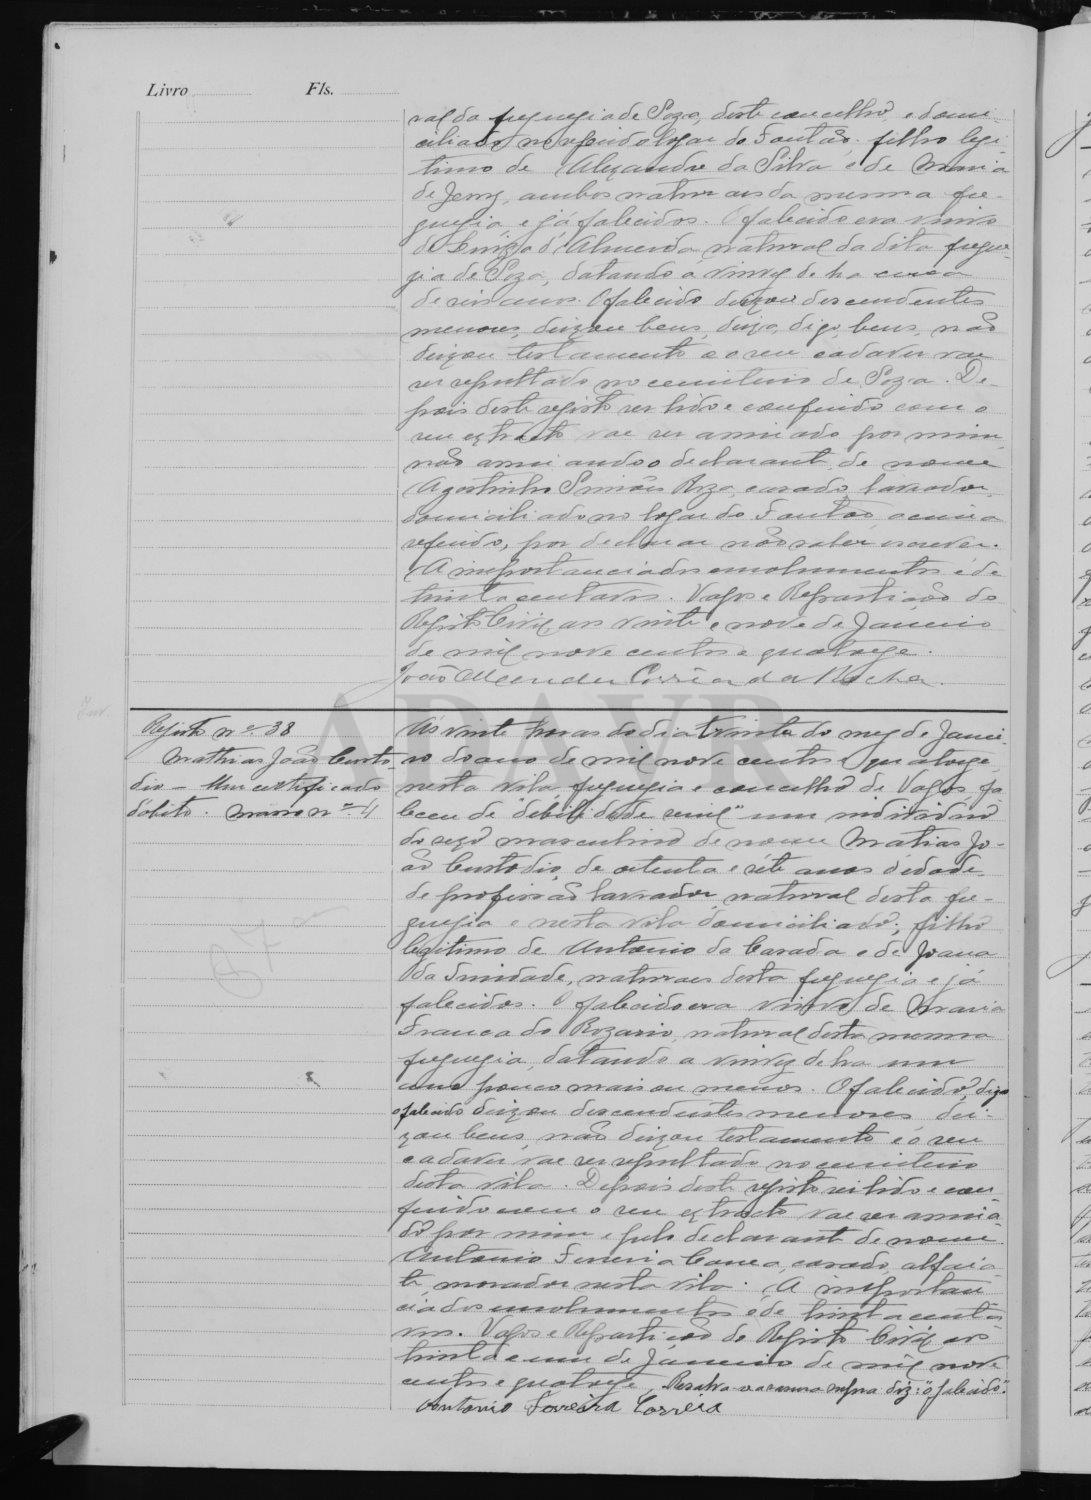 Livro Fls.
ral da freguezia de Soza, deste concelho, e domi-
ciliado no referido logar do Fontão, filho legi-
timo de Alexandre da Silva e de Maria
de Jesus, ambos naturaes da mesma fre-
guezia, e já falecidos. O falecido era viuvo
de d'Almeida, natural da dita fregue-
zia de Soza, datando a viuvez de ha cerca
de seis anos. O falecido deixou descendentes
menores, deixou bens, deixo, digo, bens, não
deixou testamento e o seu cadaver vae
ser sepultado no cemiterio de Soza. De-
pois deste registo ser lido e conferido com o
seu extracto vae ser assinado por mim,
não assinando o declarante, de nome
Agostinho Simões casado, lavrador,
domiciliado no logar do Fontão, acima
referido, por declarar não saber escrever.
A importancia dos emolumentos é de
trinta centavos. Vagos e Repartição do
Registo Civil, aos vinte e nove de Janeiro
de mil nove centos e quatorze.
João Corrêa da Rocha.
ADAVR
Registo nº 38
Mathias João Custo-
dio — Um certificado
d'obito. Masso nº 4
Ás vinte horas do dia trinta do mez de Janei-
ro do ano de mil nove centos e quatorze
nesta vila, freguezia e concelho de Vagos fa-
leceu de "debilidade senil" um individuo
do sexo masculino de nome Matias Jo-
ão Custodio, de setenta e sete anos d'edade,
de profissão lavrador, natural desta fre-
guezia e nesta vila domiciliado, filho
legitimo de Antonio da e de Joana
da Trindade, naturaes desta freguezia e já
falecidos. O falecido era viuvo de Maria
Franca do Rozario, natural desta mesma
freguezia, datando a viuvez de ha um
ano pouco mais ou menos. O falecido, digo
o falecido deixou descendentes menores, dei-
xou bens, não deixou testamento e o seu
cadaver vae ser sepultado no cemiterio
desta vila. Depois deste registo ser lido e con-
ferido com o seu extracto vae ser assina-
do por mim e pelo declarante de nome
Antonio Ferreira casado, alfaia-
te, morador nesta vila. A importan-
cia dos emolumentos é de trinta centa-
vos. Vagos e Repartição do Registo Civil aos
trinta e um de Janeiro de mil nove
centos e quatorze. Resalva-se a rasura supra diz: "o falecido".
Antonio Ferreira Correia